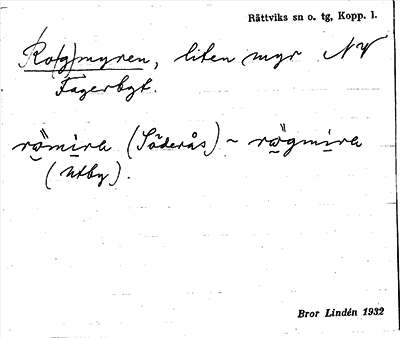 Rättviks sn o. tg, Kopp. l.
Ro(g)myren, liten myr NV
Fagerbgt.
römira (Söderås) ~ rögmira
(Utby).
Bror Lindén 1932